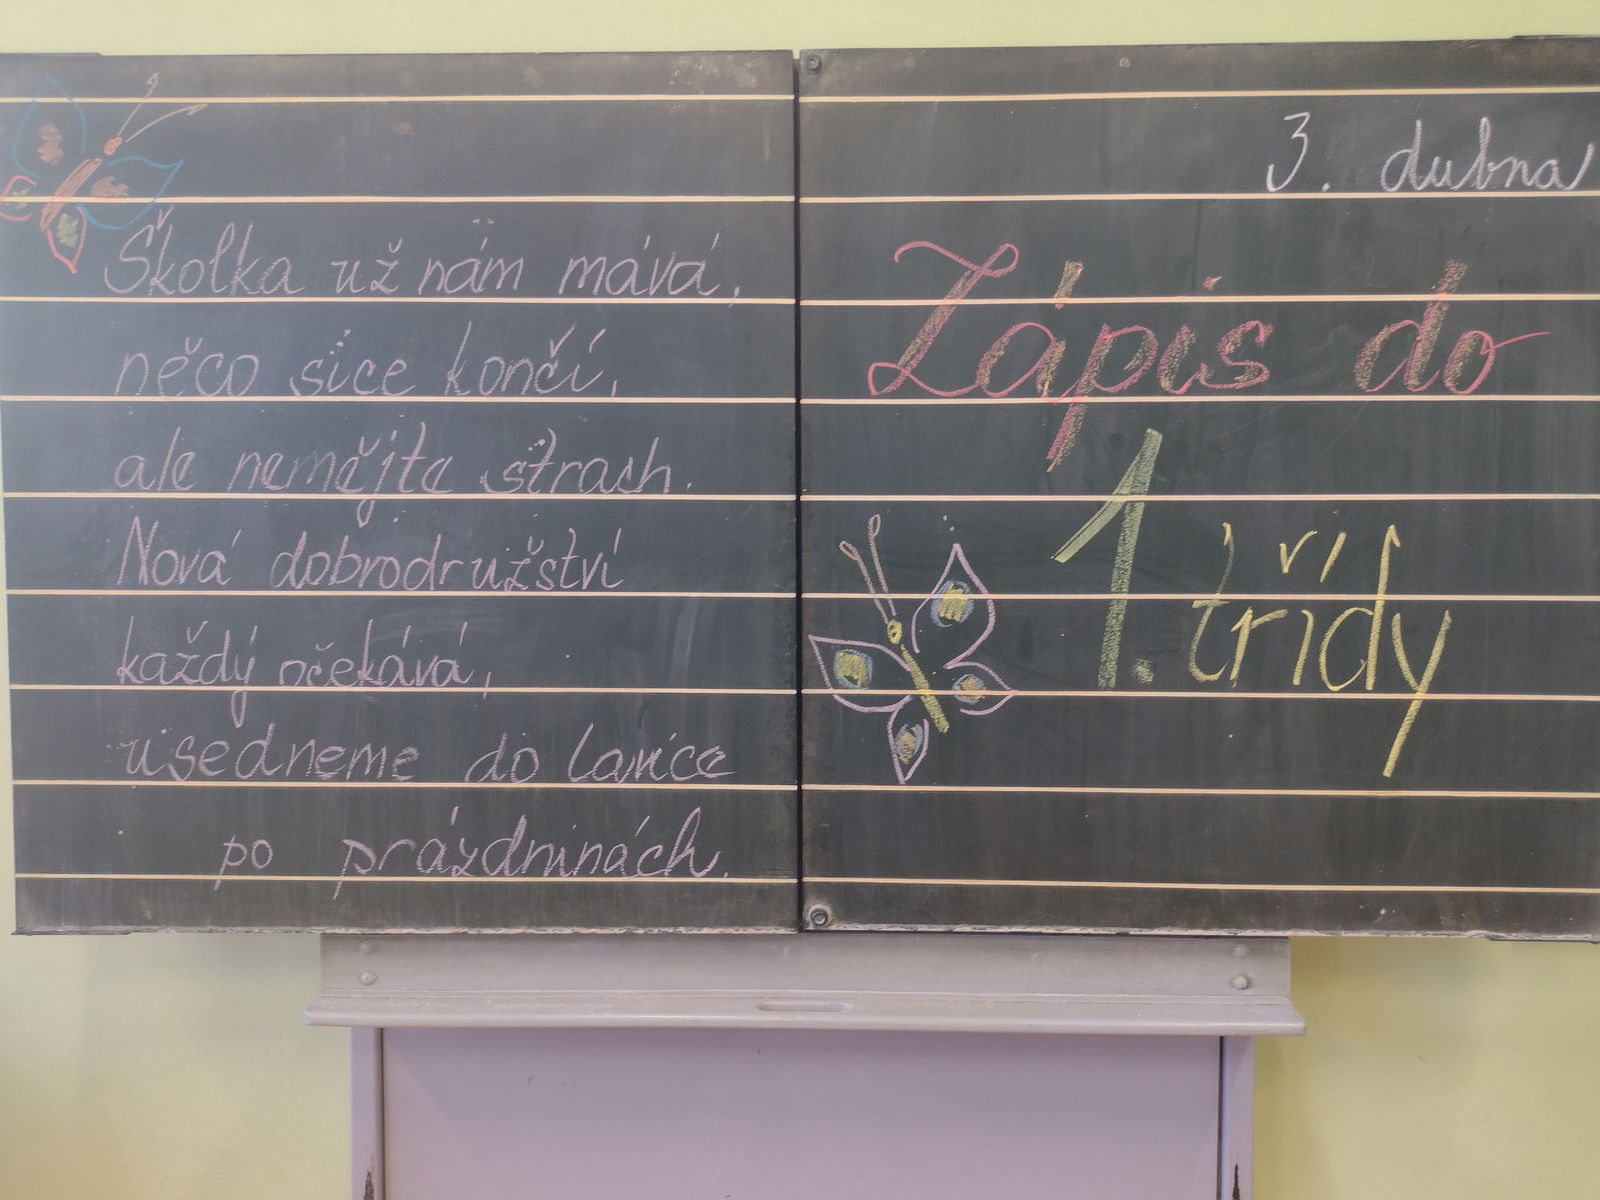 Školka už nám mává,
něco sice končí,
ale nemějte strach.
Nová dobrodružství
každý očekává,
usedneme do lavice
po prázdninách.
3. dubna
Zápis do
1. třídy